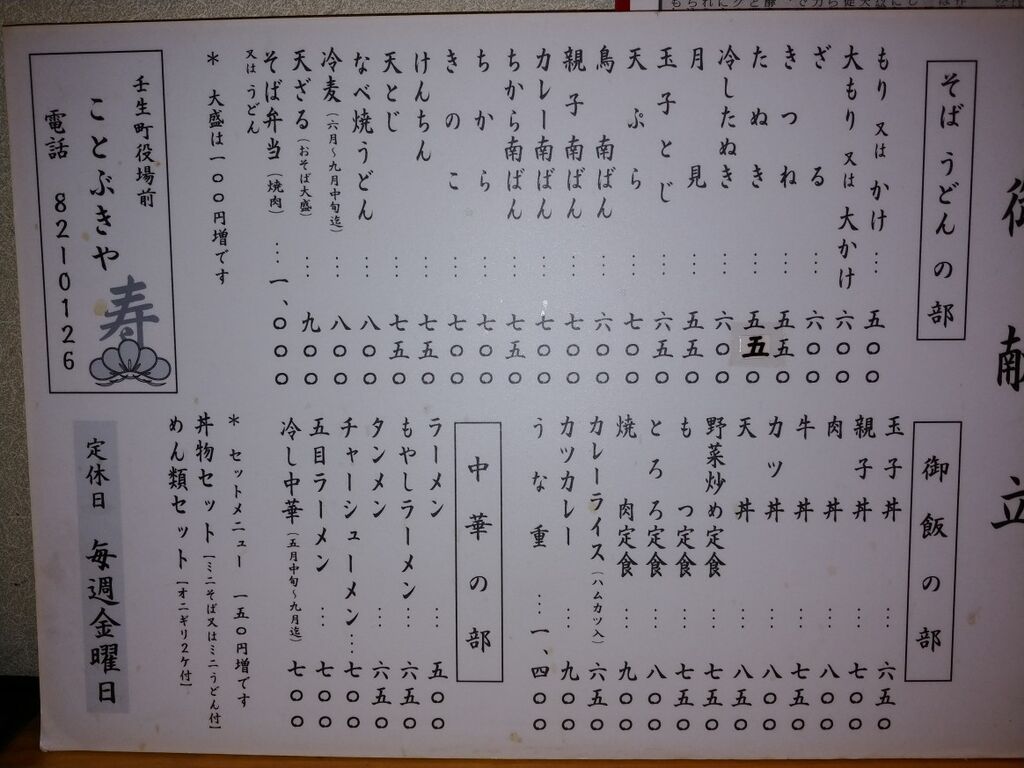 御献立
そば うどんの部
もり 又は かけ … 五〇〇
大もり 又は 大かけ 六〇〇
ざる … 六〇〇
きつね … 五五〇
たぬき … 五五〇
冷したぬき … 六〇〇
月見 … 五五〇
玉子とじ … 六五〇
天ぷら … 七〇〇
鳥南ばん … 六〇〇
親子南ばん … 七〇〇
カレー南ばん … 七〇〇
ちから南ばん … 七五〇
ちから … 七〇〇
きのこ … 七〇〇
けんちん … 七五〇
天とじ … 七五〇
なべ焼うどん … 八〇〇
冷麦(六月〜九月中旬迄) … 八〇〇
天ざる(おそば大盛) … 九〇〇
そば弁当(焼肉) … 一、〇〇〇
又はうどん
* 大盛は一〇〇円増です
御飯の部
玉子丼 … 六五〇
親子丼 … 七〇〇
肉丼 … 七〇〇
牛丼 … 七五〇
カツ丼 … 八〇〇
天丼 … 八五〇
野菜炒め定食 … 七五〇
もつ定食 … 七五〇
とろろ定食 … 八〇〇
焼肉定食 … 九〇〇
カレーライス(ハムカツ入) 六五〇
カツカレー … 九〇〇
うな重 … 一、四〇〇
中華の部
ラーメン … 五〇〇
もやしラーメン … 六五〇
タンメン … 六五〇
チャーシューメン … 七〇〇
五目ラーメン … 七〇〇
冷し中華(五月中旬〜九月迄) 七〇〇
* セットメニュー 一五〇円増です
丼物セット[ミニそば又はミニうどん付]
めん類セット[オニギリ2ケ付]
壬生町役場前
ことぶきや
寿
電話 82-0126
定休日 毎週金曜日